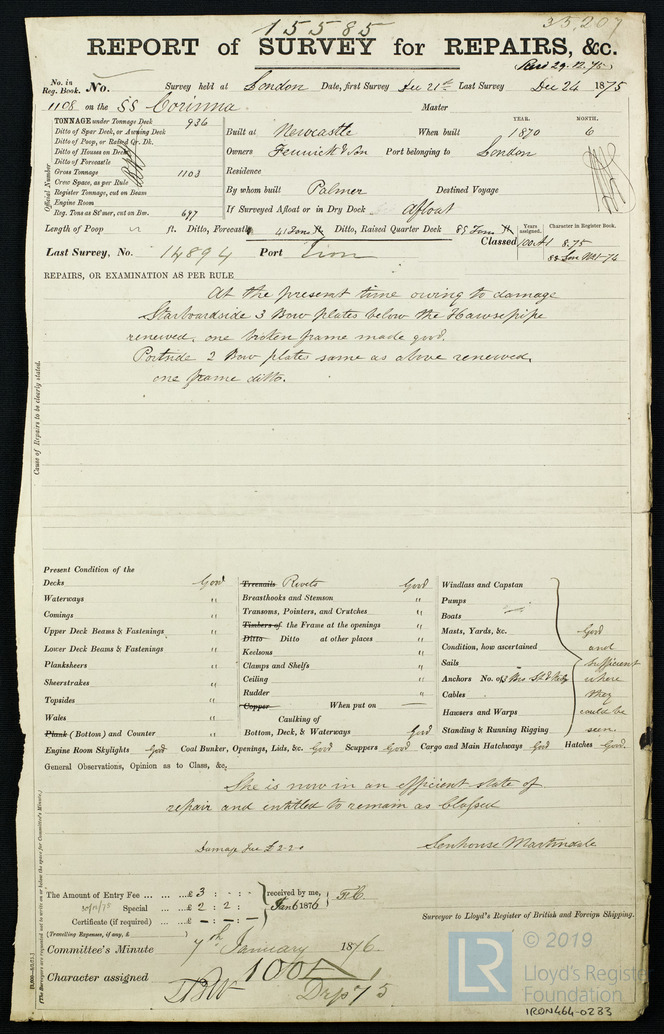 15585
35,207
REPORT of SURVEY for REPAIRS, &c.
Recd 29.12.75
No. in Reg. Book. No. Survey held at London Date, first Survey Dec 21st Last Survey Dec 24 1875
1108 on the SS Corinna Master
TONNAGE under Tonnage Deck 936
Ditto of Spar Deck, or Awning Deck
Ditto of Poop, or Raised Qr. Dk.
Ditto of Houses on Deck
Ditto of Forecastle
Gross Tonnage 1103
Crew Space, as per Rule
Register Tonnage, cut on Beam
Engine Room
Reg. Tons as St'mer, cut on Bm. 697
Official Number
YEAR. MONTH.
Built at Newcastle When built 1870 6
Owners Fenwick & Son Port belonging to London
Residence
By whom built Palmer Destined Voyage
If Surveyed Afloat or in Dry Dock Afloat
Length of Poop ft. Ditto, Forecastle 41 Tons Ditto, Raised Quarter Deck 89 Tons
Years assigned. Character in Register Book.
Classed 100A1 8.75
Last Survey, No. 14894 Port Iron
REPAIRS, OR EXAMINATION AS PER RULE
At the present time owing to damage
Starboardside 3 Bow plates below the Hawsepipe
renewed, one broken frame made good.
Portside 2 Bow plates same as above renewed,
one frame ditto.
Cause of Repairs to be clearly stated.
Present Condition of the
Decks Good
Waterways "
Comings "
Upper Deck Beams & Fastenings "
Lower Deck Beams & Fastenings "
Planksheers "
Sheerstrakes "
Topsides "
Wales "
Plank (Bottom) and Counter "
Treenails Rivets Good
Breasthooks and Stemson "
Transoms, Pointers, and Crutches "
Timbers of the Frame at the openings "
Ditto Ditto at other places "
Keelsons "
Clamps and Shelfs "
Ceiling "
Rudder "
Copper When put on —
Caulking of
Bottom, Deck, & Waterways Good
Windlass and Capstan
Pumps
Boats
Masts, Yards, &c.
Condition, how ascertained
Sails
Anchors No. of
Cables
Hawsers and Warps
Standing & Running Rigging
Good
and
Sufficient
where
they
could be
seen.
Engine Room Skylights Good Coal Bunker, Openings, Lids, &c. Good Scuppers Good Cargo and Main Hatchways Good Hatches Good.
General Observations, Opinion as to Class, &c.
She is now in an efficient state of
repair and entitled to remain as Classed
Damage Fee £2-2-0
Senhouse Martindale
The Amount of Entry Fee ... ... ...£ 3 : - : -
Special ... ...£ 2 : 2 :
Certificate (if required) ...£ — : — : —
(Travelling Expenses, if any, £ )
received by me,
Jan 6 1876
Surveyor to Lloyd's Register of British and Foreign Shipping.
Committee's Minute 7th January 1876.
Character assigned 100A1
[The Surveyors are requested not to write on or below the space for Committee's Minute.]
© 2019
LR
Lloyd's Register
Foundation
IRON464-0233